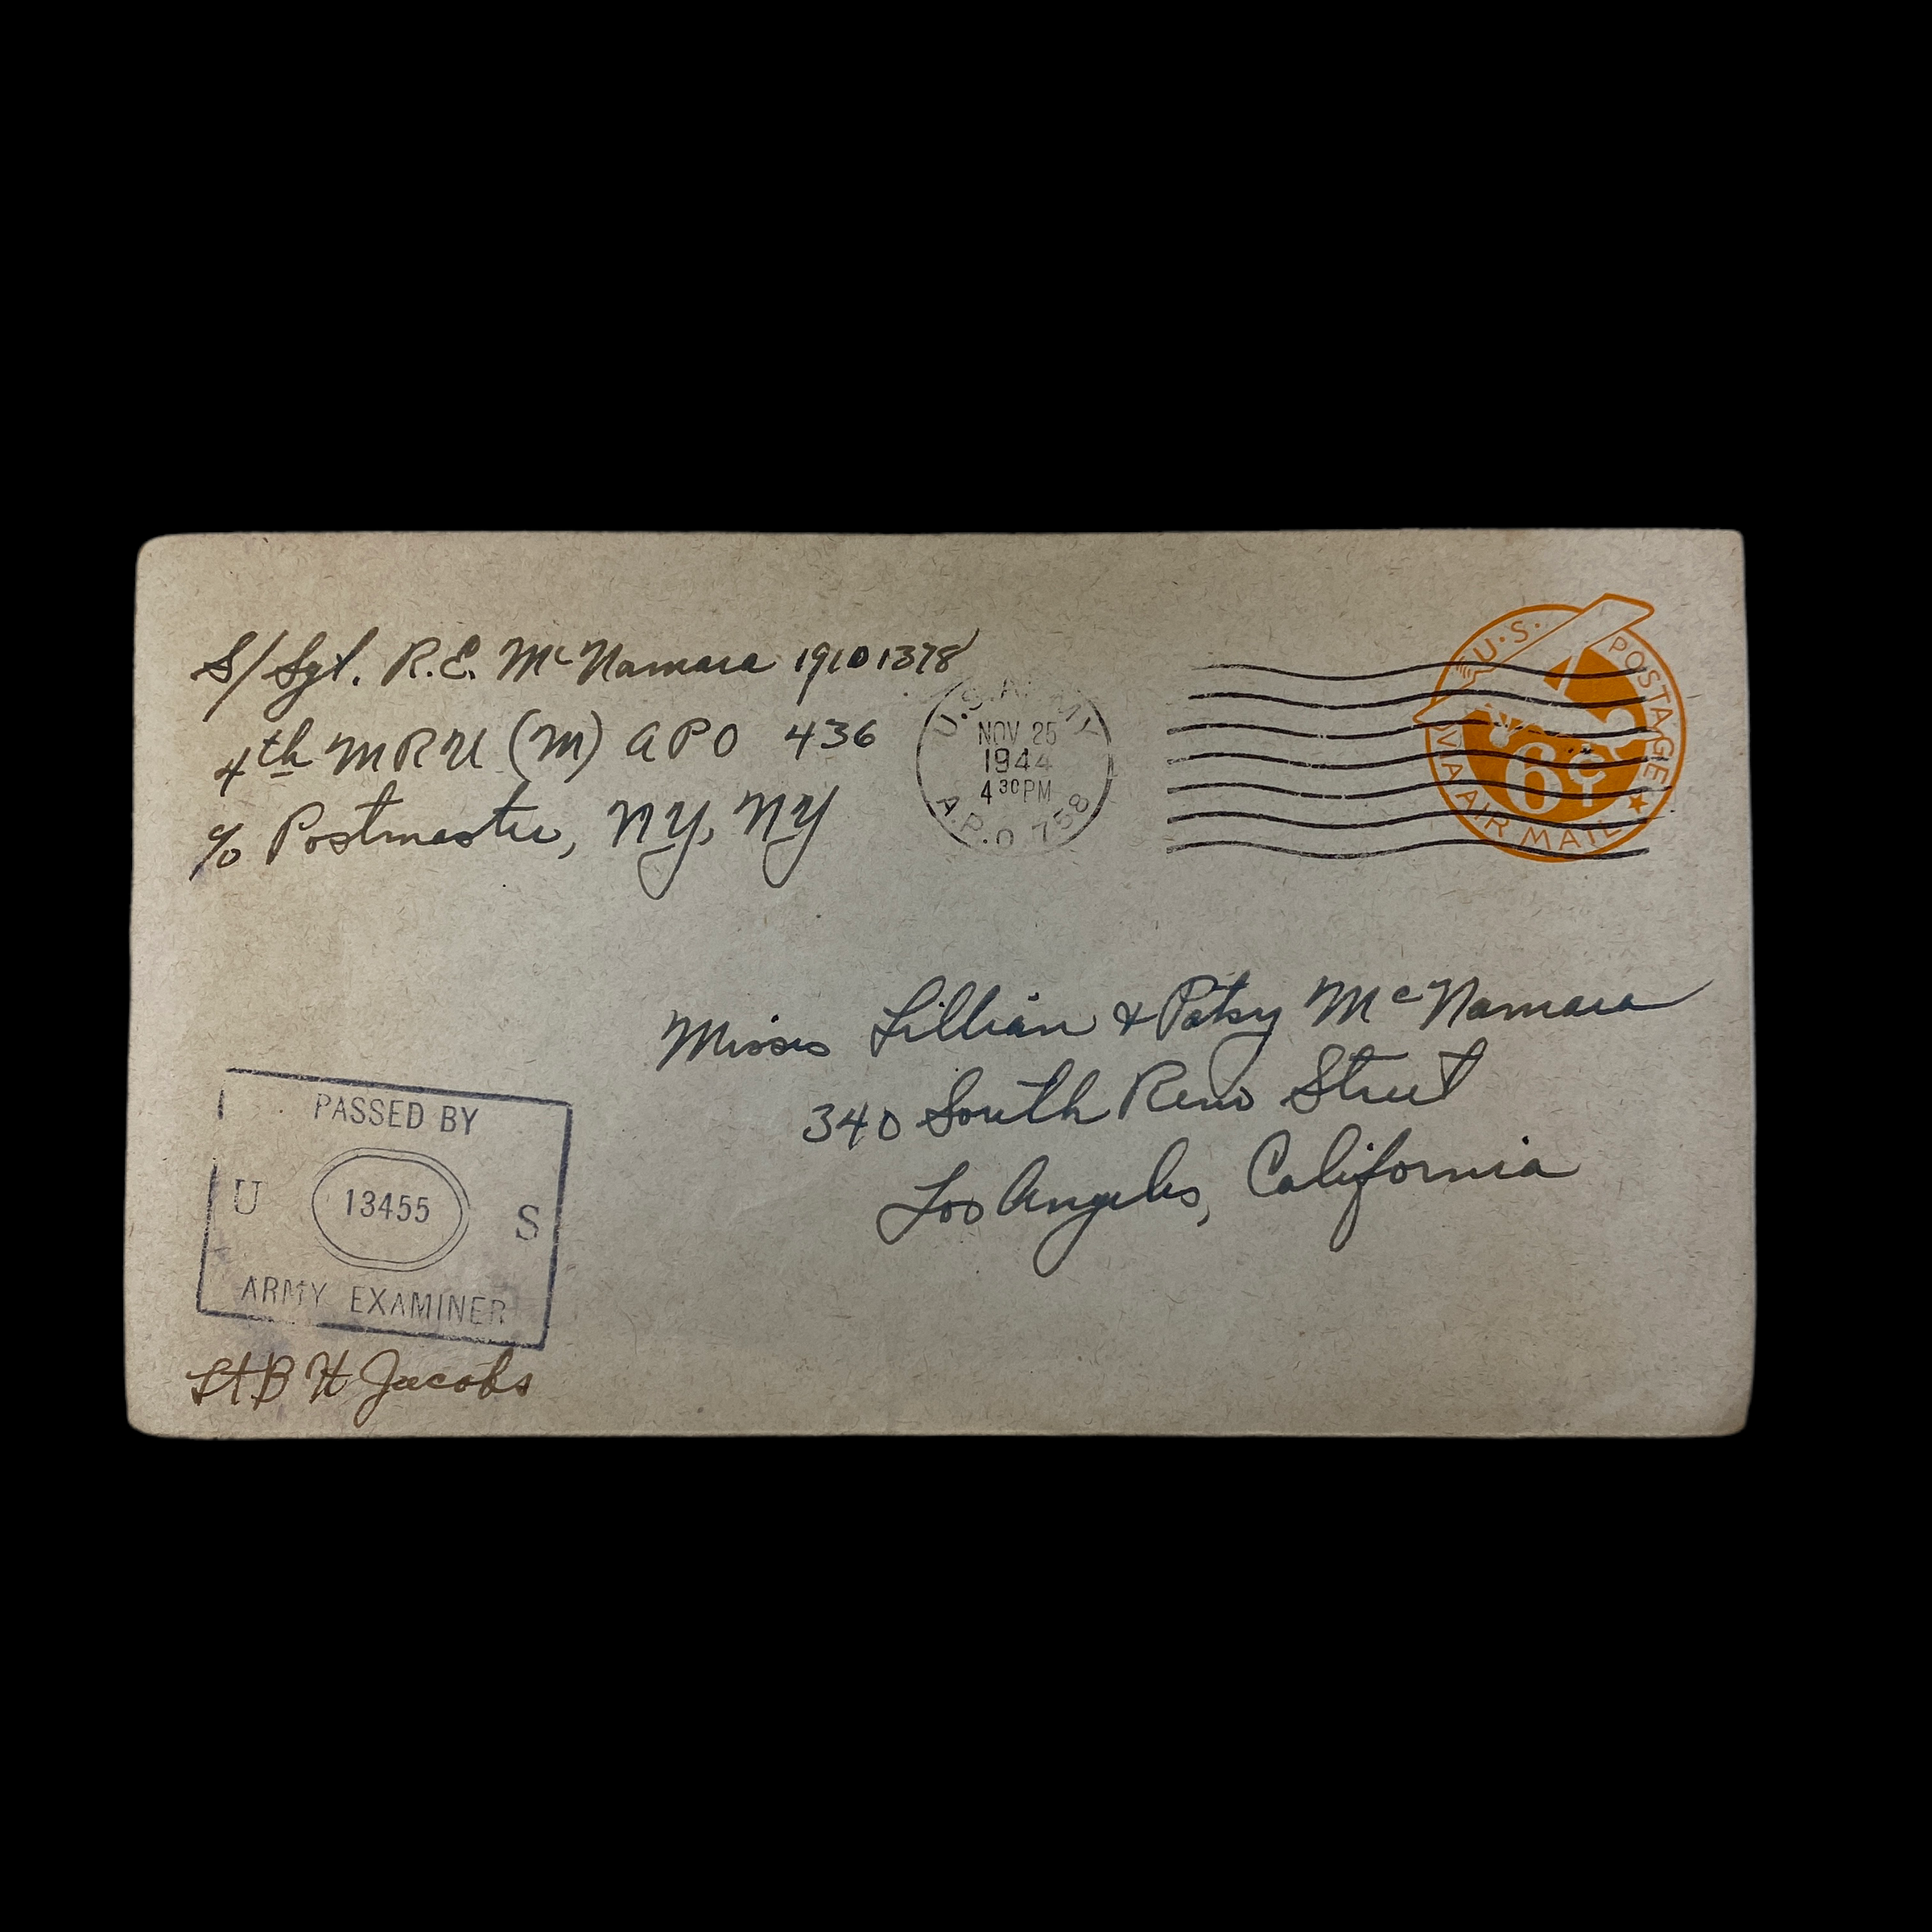 S/Sgt. R.E. McNamara 19101378
4th MRU (M) APO 436
c/o Postmaster, NY, NY
U.S. ARMY
NOV 25
1944
4 30 PM
A.P.O 758
U.S. POSTAGE
6¢
VIA AIR MAIL
Misses Lillian & Patsy McNamara
340 South Reno Street
Los Angeles, California
PASSED BY
U 13455 S
ARMY EXAMINER
Lt B H Jacobs